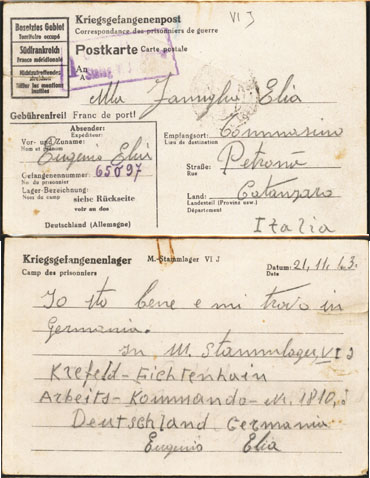 Kriegsgefangenenpost
VI J
Correspondance des prisonniers de guerre
Besetztes Gebiet
Territoire occupé
Südfrankreich
France méridionale
Nichtzutreffendes
streichen
Biffer les mentions
inutiles
Postkarte Carte postale
An
A
Alla Famiglia Elia
Gebührenfrei! Franc de port!
Absender:
Expéditeur:
Vor- und Zuname:
Nom et prénom
Eugenio Elia
Gefangenennummer: 65097
No du prisonnier
Lager-Bezeichnung:
Nom du camp
siehe Rückseite
voir au dos
Deutschland (Allemagne)
Empfangsort:
Lieu de destination
Straße: Petronà
Rue
Land: Catanzaro
Landesteil (Provinz usw.)
Département
Italia
Kriegsgefangenenlager M.-Stammlager VI J
Camp des prisonniers
Datum: 21, 11, 43.
Date
Io sto bene e mi trovo in
Germania.
In M. Stammlager VI J
Krefeld-Fichtenhain
Arbeits-Kommando-N. 1810,
Deutschland Germania
Eugenio Elia